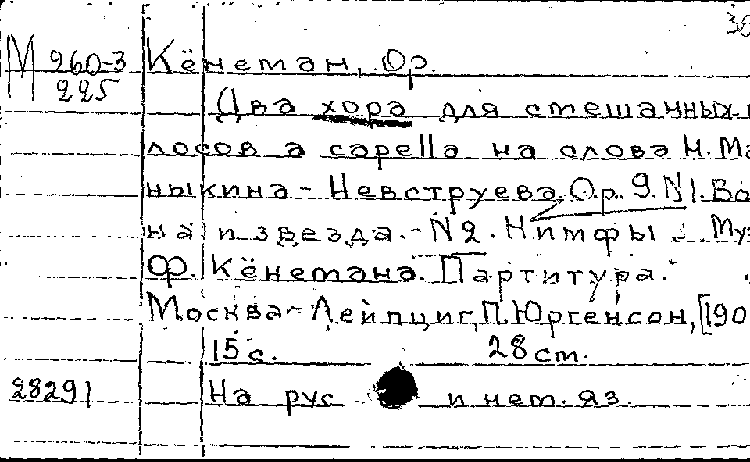 30
М 960-3 Кёнеман, Ф.
225 Два хора для смешанных г
лосов a capella на слова М. Ма
ныкина-Невструева. Ор. 9. №1. Вол
на и звезда.-№2. Нимфы. Муз
Ф. Кёнемана. Партитура.
Москва-Лейпциг, П. Юргенсон, [190
15 с. 28 cm.
28291 На рус и нем. яз.